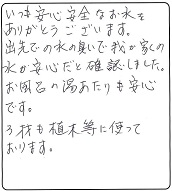 いつも安心安全なお水を
ありがとうございます。
出先での水の臭いで我が家の
水が安心だと確認しました。
お風呂の湯あたりも安心
です。
うちも植木等に使って
おります。